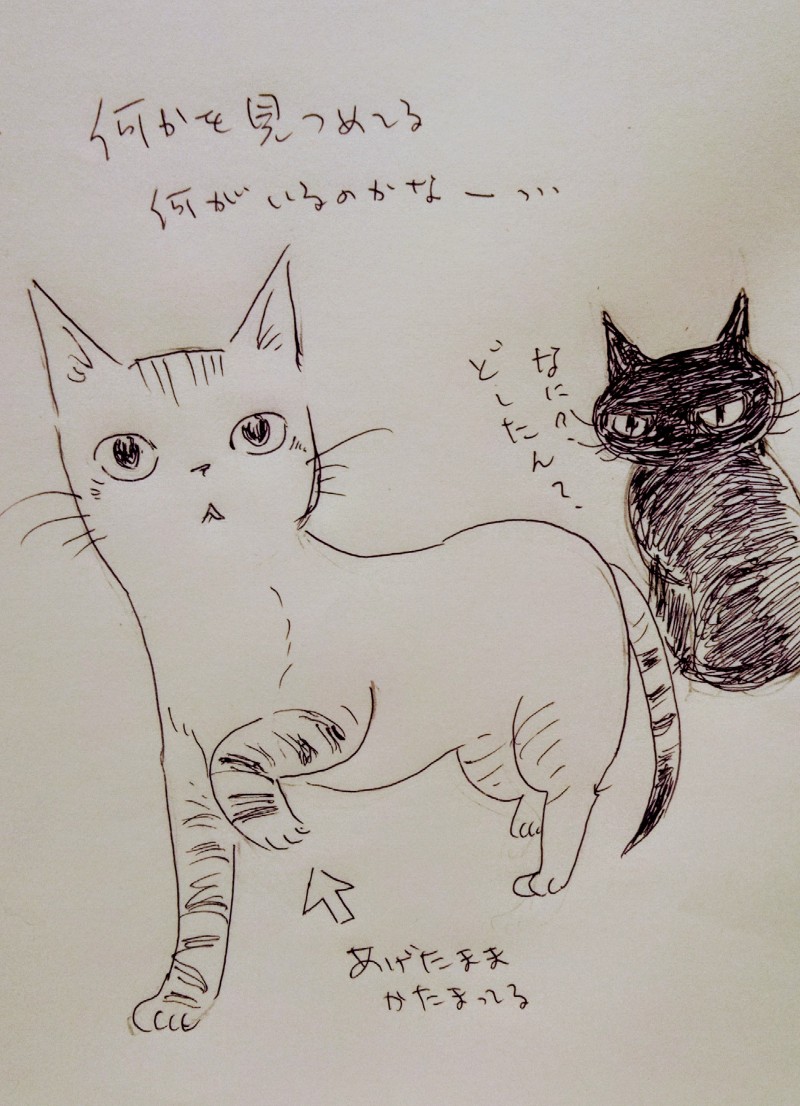 何かを見つめてる
何がいるのかなー…
なに?
どしたん?
あげたまま
かたまってる